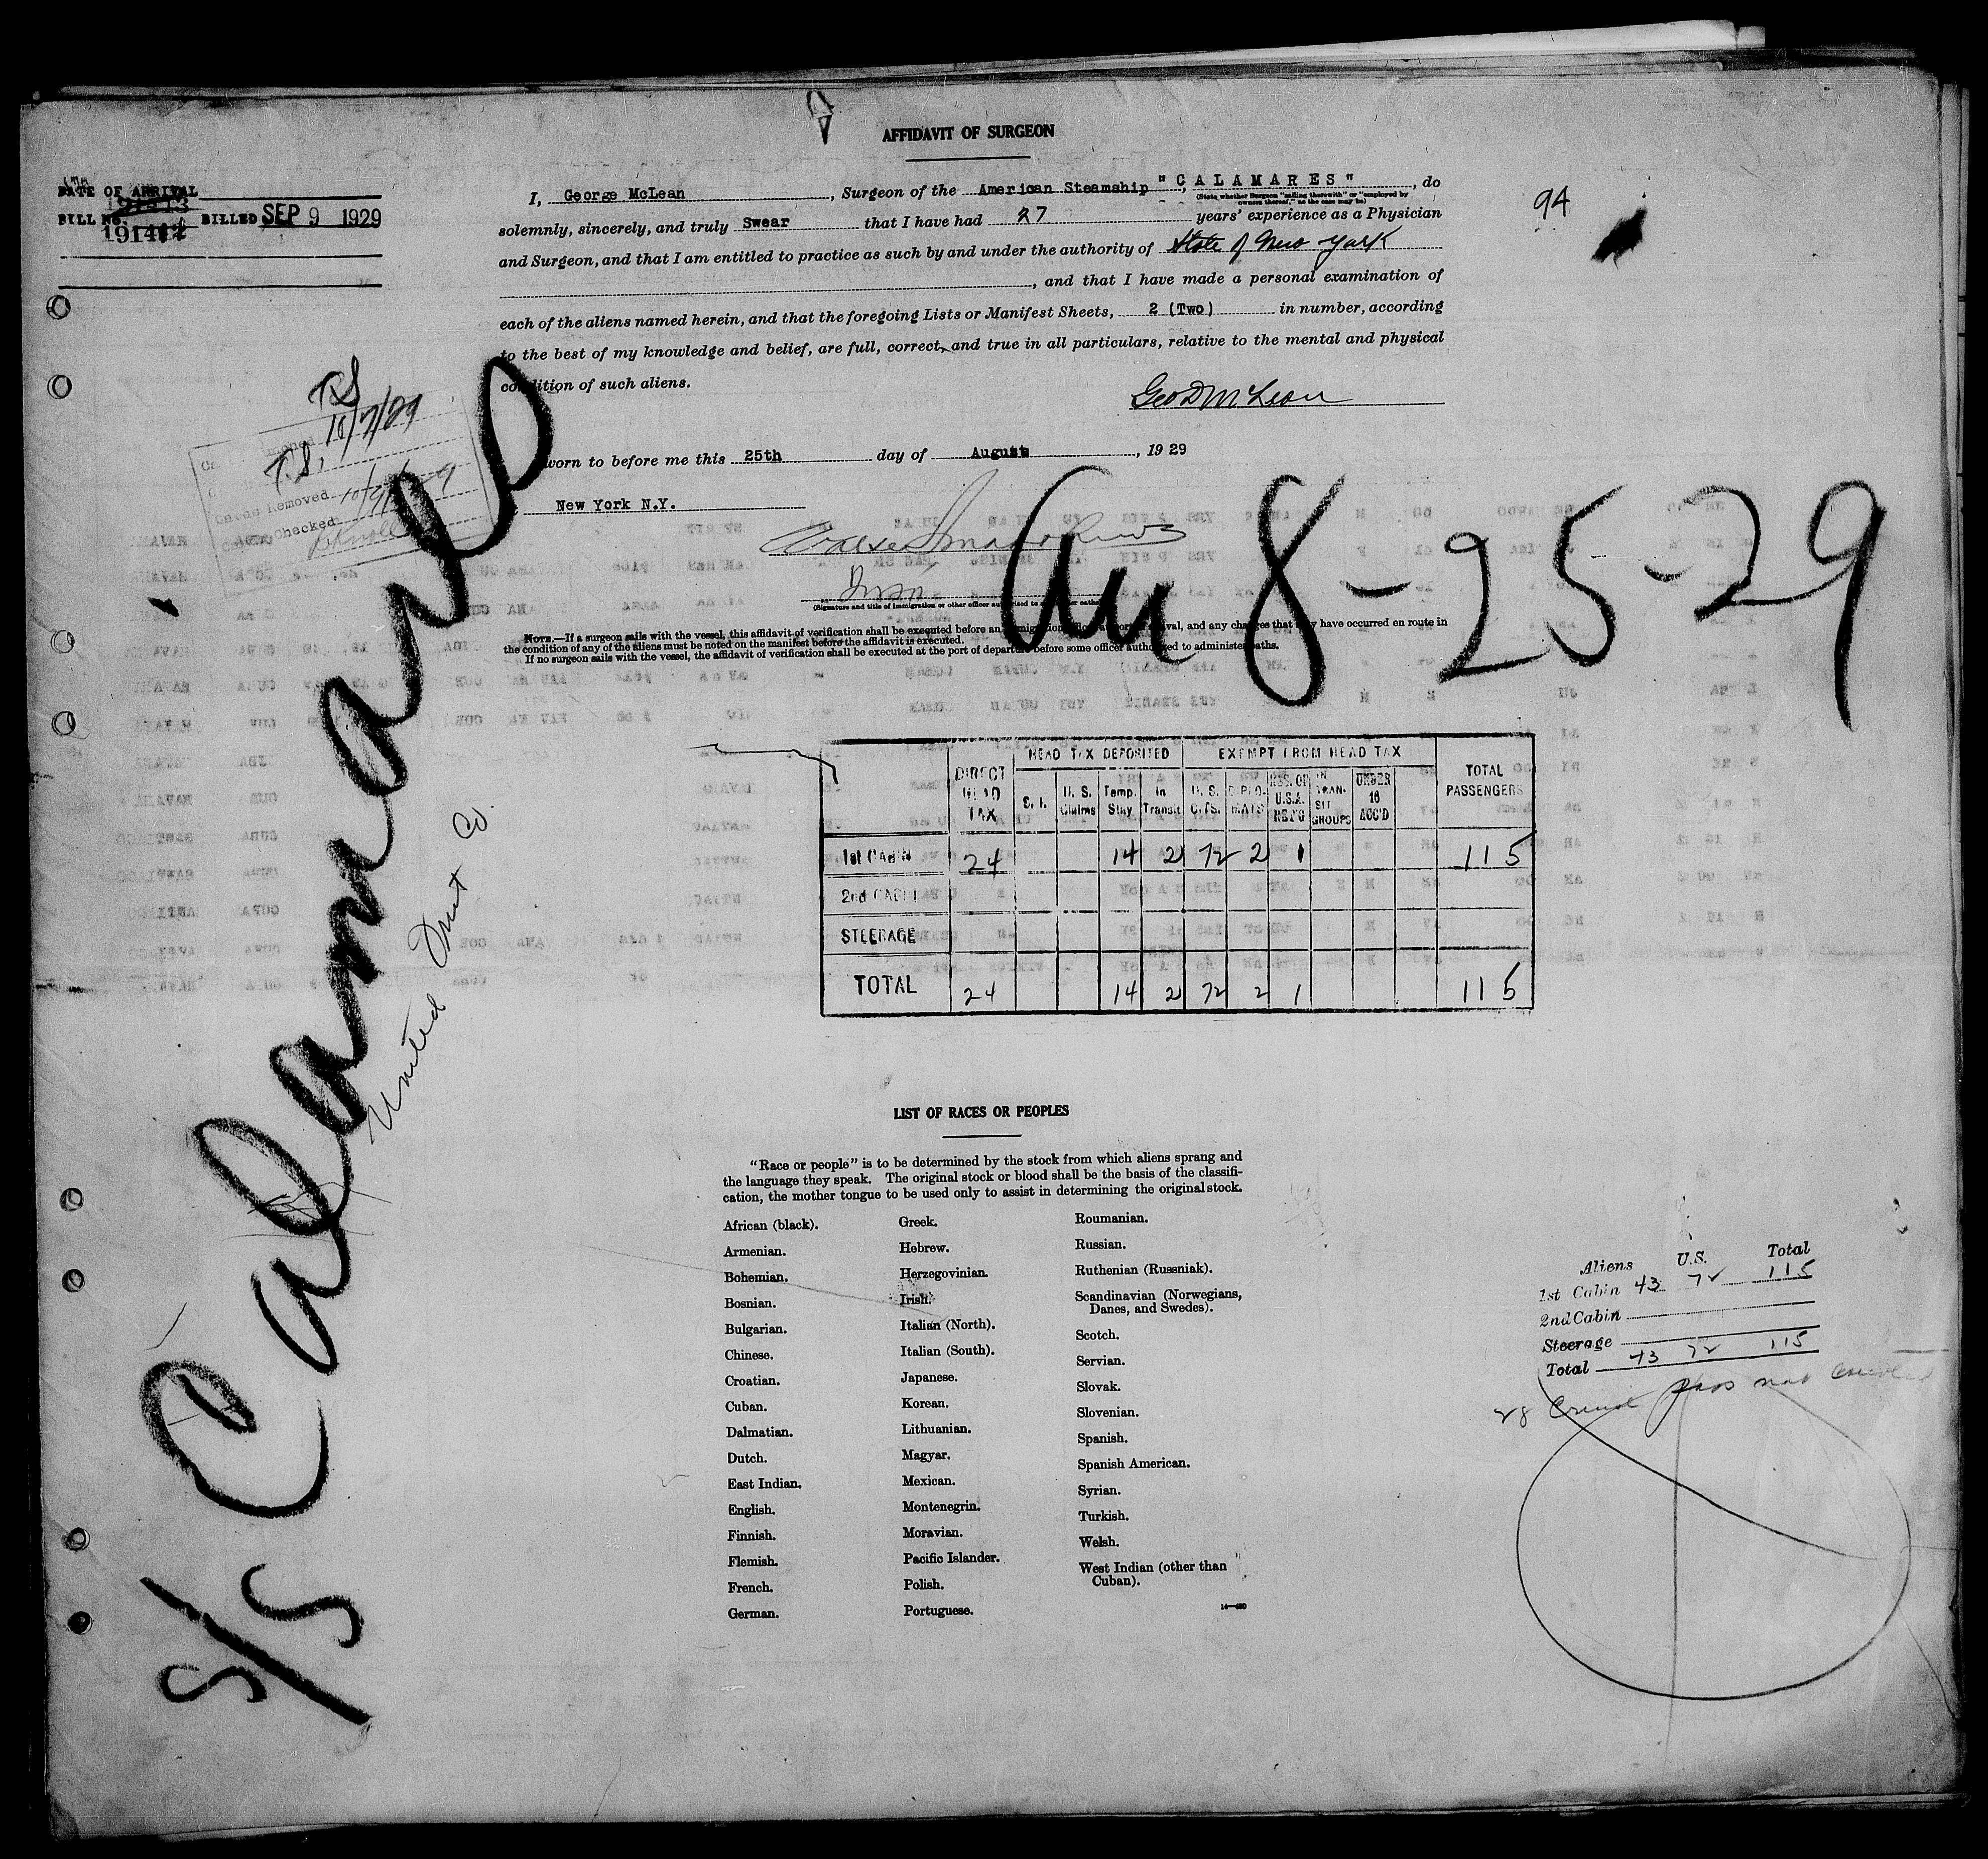 AFFIDAVIT OF SURGEON
DATE OF ARRIVAL
BILL No. BILLED SEP 9 1929
I, George McLean, Surgeon of the American Steamship "CALAMARES", do
(State whether Surgeon "sailing therewith" or "employed by
owners thereof," as the case may be)
solemnly, sincerely, and truly Swear that I have had 27 years' experience as a Physician
and Surgeon, and that I am entitled to practice as such by and under the authority of State of New York
, and that I have made a personal examination of
each of the aliens named herein, and that the foregoing Lists or Manifest Sheets, 2 (Two) in number, according
to the best of my knowledge and belief, are full, correct, and true in all particulars, relative to the mental and physical
condition of such aliens.
94
Geo D McLean
worn to before me this 25th day of August, 1929
New York N.Y.
(Signature and title of immigration or other officer authorized to administer oaths)
NOTE.—If a surgeon sails with the vessel, this affidavit of verification shall be executed before an immigration officer at port of arrival, and any changes that may have occurred en route in
the condition of any of the aliens must be noted on the manifest before the affidavit is executed.
If no surgeon sails with the vessel, the affidavit of verification shall be executed at the port of departure before some officer authorized to administer oaths.
T.S.
10/7/29
T.S.
Removed
Checked
8-25-29
S/S Calamares
United Fruit Co.
HEAD TAX DEPOSITED EXEMPT FROM HEAD TAX
DIRECT HEAD TAX S. I. U. S. Claims Temp. Stay In Transit U. S. CITS. DIPLOMATS RES. OF U.S.A. RET'G IN TRANSIT GROUPS UNDER 16 ACC'D TOTAL PASSENGERS
1st CABIN 24 14 2 72 2 1 115
2nd CABIN
STEERAGE
TOTAL 24 14 2 72 2 1 115
LIST OF RACES OR PEOPLES
"Race or people" is to be determined by the stock from which aliens sprang and
the language they speak. The original stock or blood shall be the basis of the classifi-
cation, the mother tongue to be used only to assist in determining the original stock.
African (black).
Armenian.
Bohemian.
Bosnian.
Bulgarian.
Chinese.
Croatian.
Cuban.
Dalmatian.
Dutch.
East Indian.
English.
Finnish.
Flemish.
French.
German.
Greek.
Hebrew.
Herzegovinian.
Irish.
Italian (North).
Italian (South).
Japanese.
Korean.
Lithuanian.
Magyar.
Mexican.
Montenegrin.
Moravian.
Pacific Islander.
Polish.
Portuguese.
Roumanian.
Russian.
Ruthenian (Russniak).
Scandinavian (Norwegians,
Danes, and Swedes).
Scotch.
Servian.
Slovak.
Slovenian.
Spanish.
Spanish American.
Syrian.
Turkish.
Welsh.
West Indian (other than
Cuban).
Aliens U.S. Total
1st Cabin 43 72 115
2nd Cabin
Steerage
Total 43 72 115
28 pass not